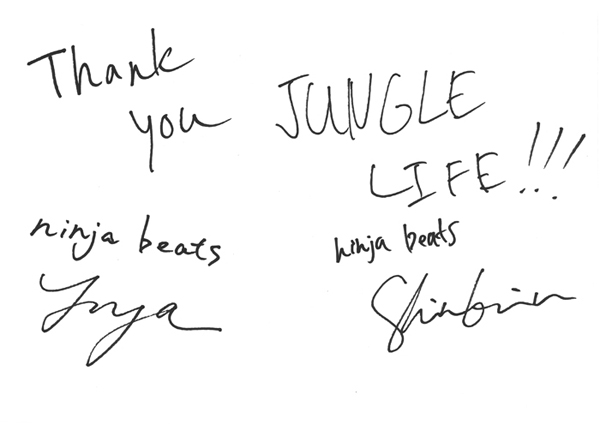 Thank
you JUNGLE
LIFE!!!
ninja beats
Yuya
ninja beats